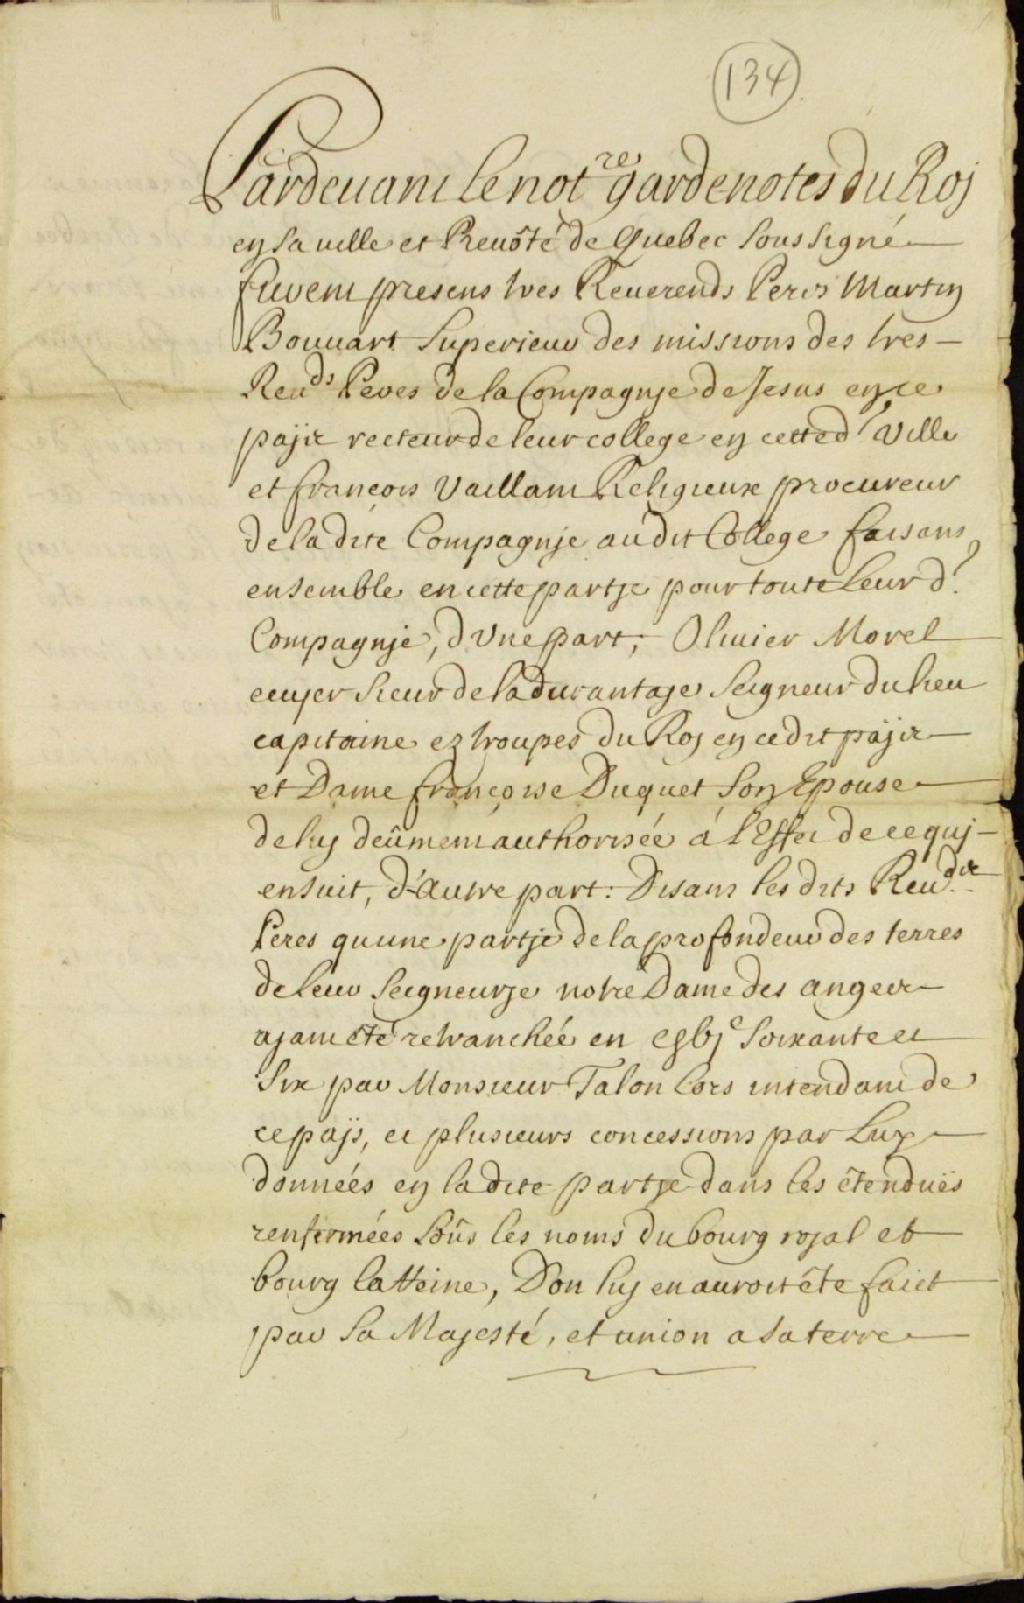 134
Pardevant le not.re gardenotes du Roy
en sa ville et Prevôté de Quebec soussigné
furent presens tres Reverends Peres Martin
Bouvart Superieur des missions des tres
Reu.ds Peres de la Compagnje de Jesus en ce
païs recteur de leur college en cette d.e Ville
et françois Vaillant Religieux procureur
de la dite Compagnje au dit College faisans
ensemble en cette partje pour toute Leur d.e
Compagnje, d'Une part; Olivier Morel
ecuyer sieur de la durantaye Seigneur du lieu
capitaine ez troupes du Roy en ce dit païs
et Dame françoise Duquet son Epouse
de luy deûment authorisée á l'Effet de ce quj
ensuit, d'autre part: Disans les dits Reu.ds
Peres qu'une partje de la profondeur des terres
de leur Seigneurje notre Dame des anges
ayant été retranchée en cGbj.e soixante et
six par Monsieur Talon lors intendant de
ce païs, et plusieurs concessions par Luy
données en la dite partje dans les étenduës
renfermées soûs les noms du bourg royal et
bourg la Reine, Don luy en auroit été faict
par Sa Majesté, et union a sa terre